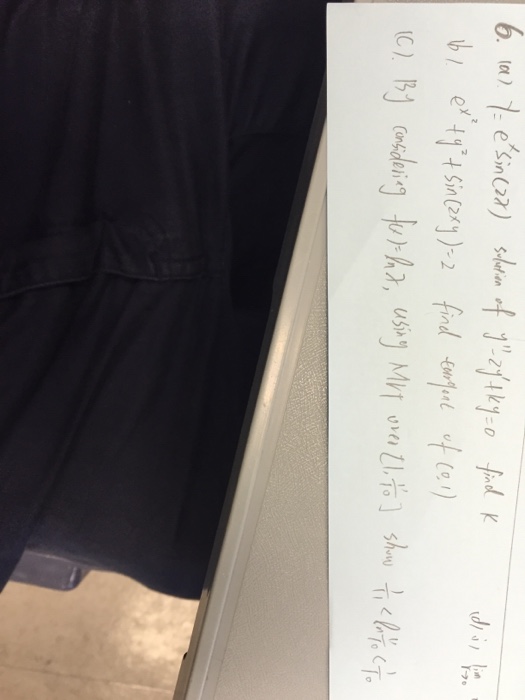 6. (a). y = e^x sin(2x) solution of y'' - 2y' + ky = 0 find k
b) e^{x²} + y² + sin(2xy) = 2 find tangent of (0,1)
(c). By considering f(x) = ln x, using MVT over [1, 11/10] show 1/11 < ln 11/10 < 1/10
(d) i, lim